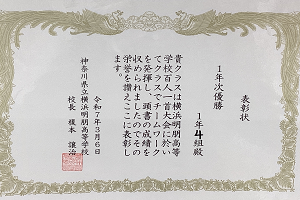 表彰状
1年次優勝
1年4組殿
貴クラスは横浜明朋高等
学校百人一首大会に於い
てクラスでチームワーク
を発揮し、頭書の成績を
収められましたのでその
栄誉を讃えここに表彰し
ます。
令和7年3月6日
神奈川県立横浜明朋高等学校
校長 榎本 讓治